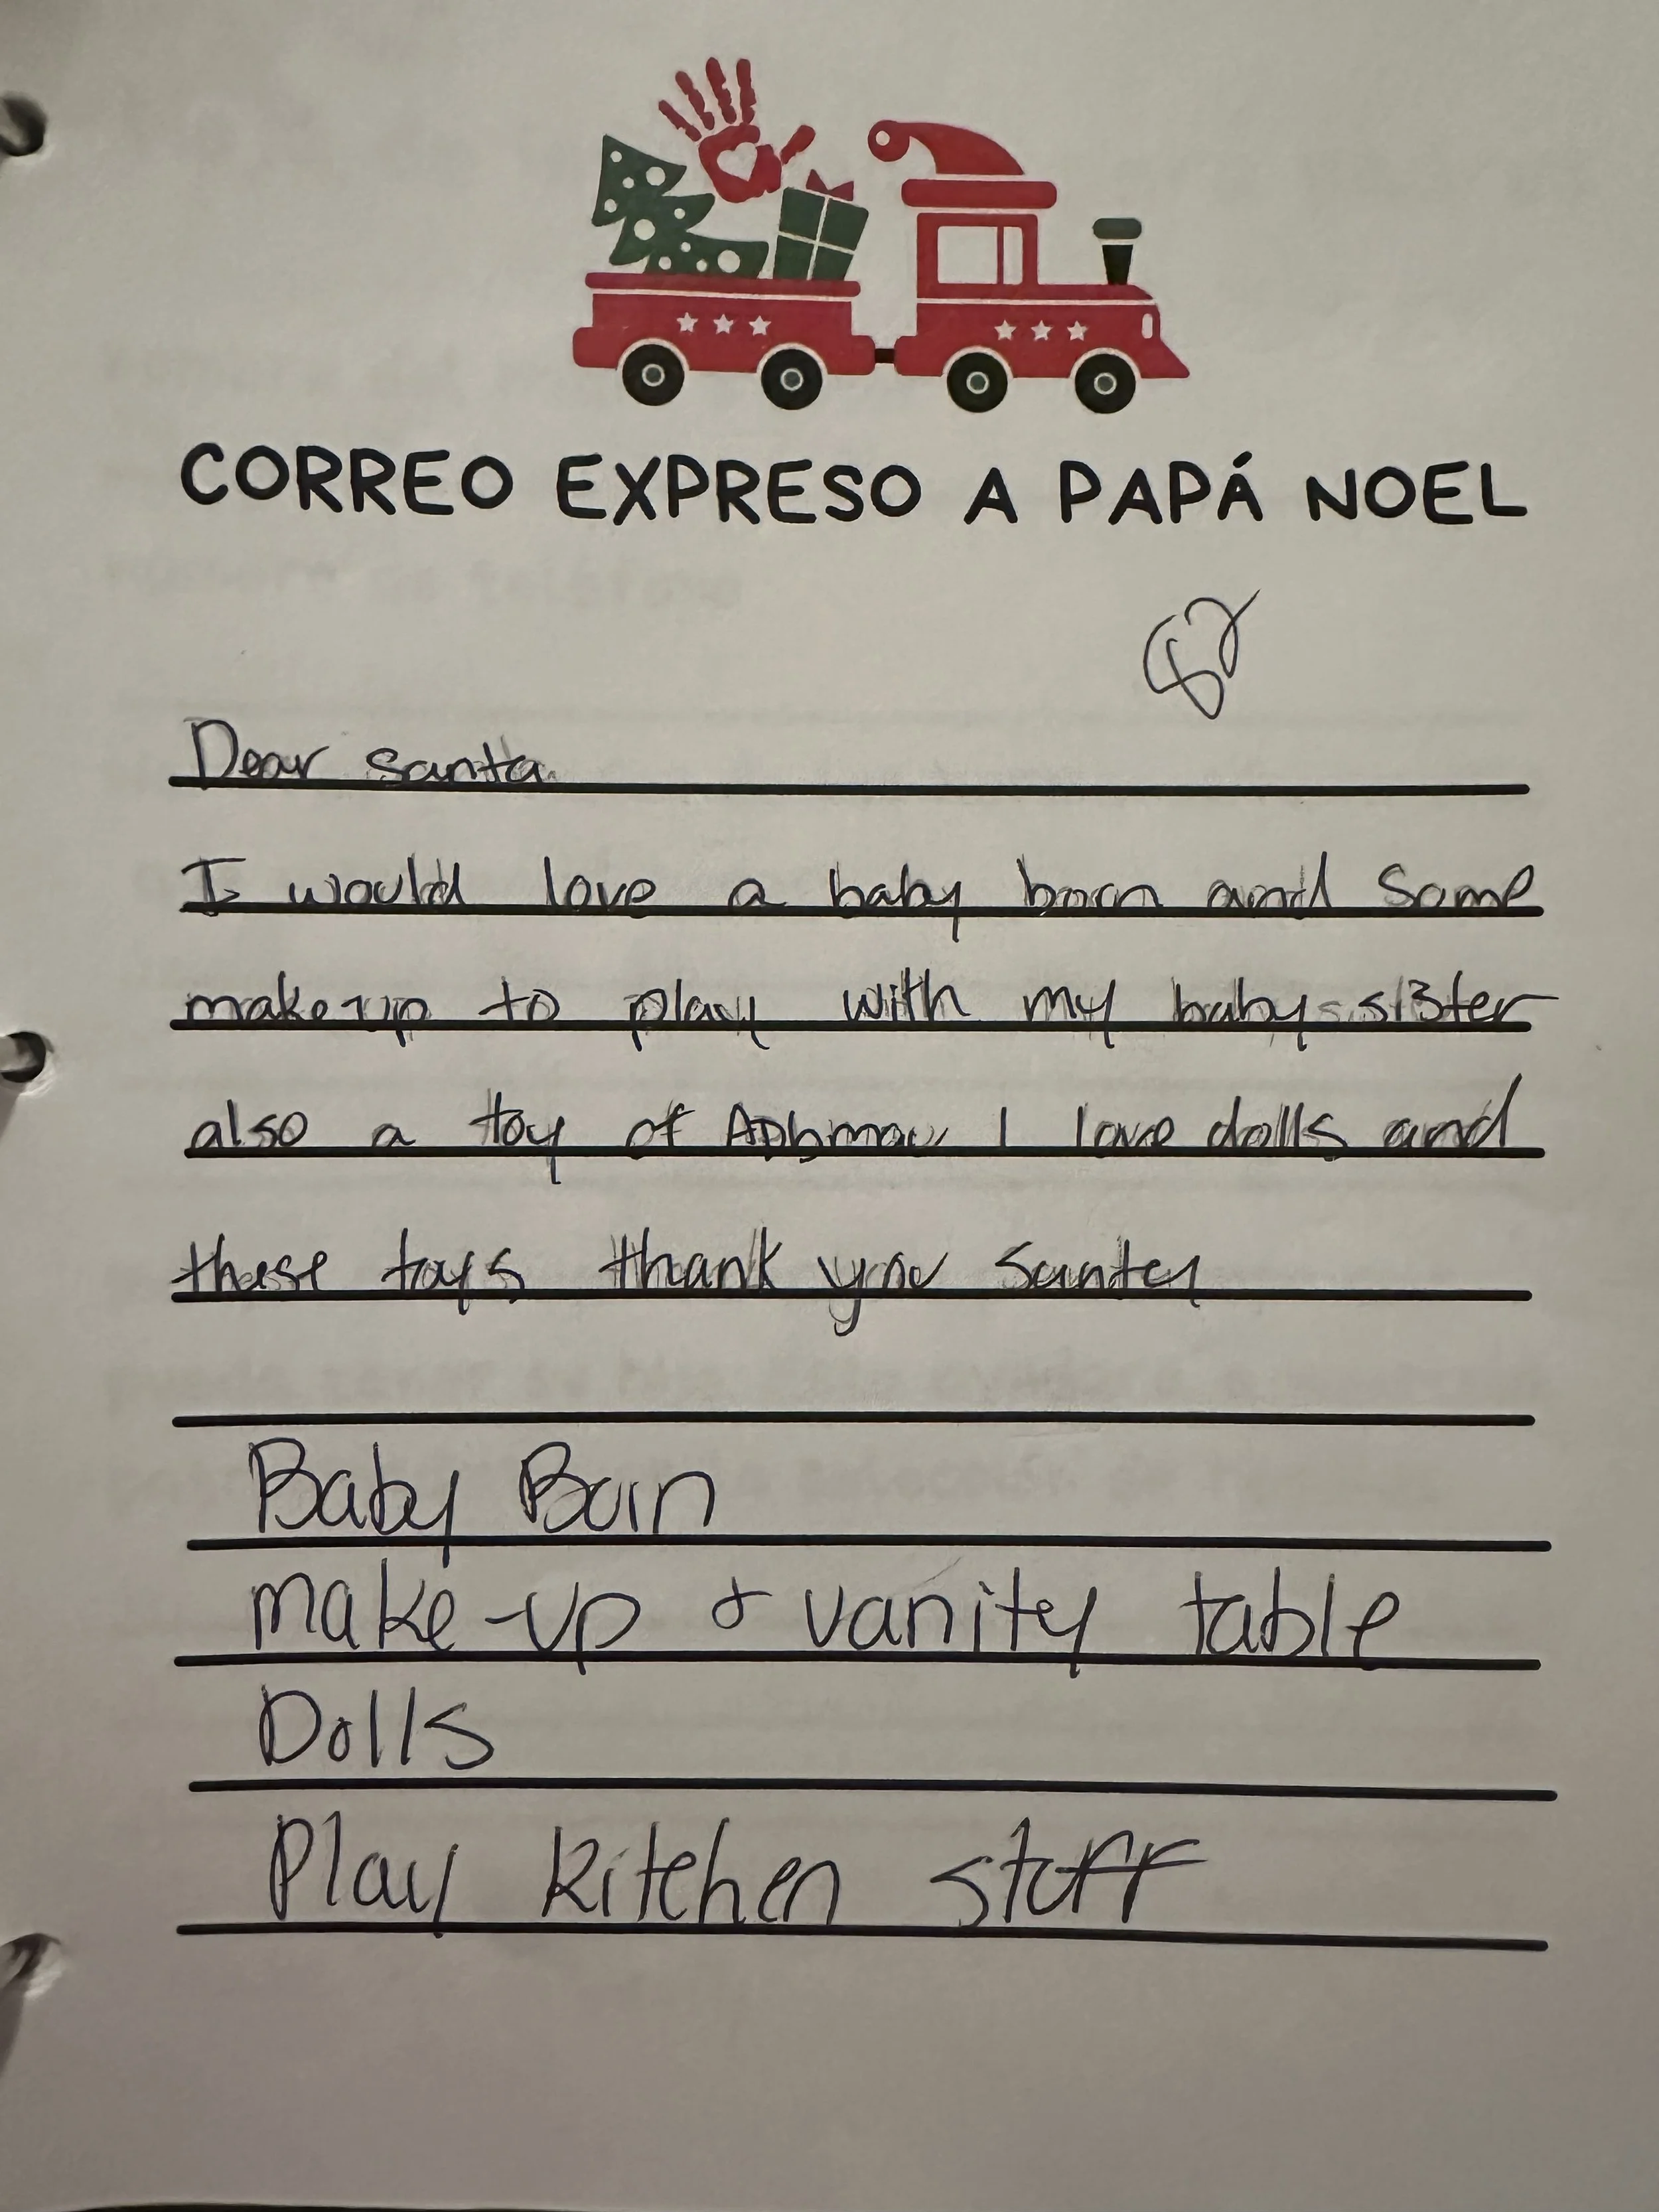 CORREO EXPRESO A PAPÁ NOEL
Dear Santa
I would love a baby born and some
make up to play with my baby sister
also a toy of Aphmau I love dolls and
these toys thank you Santa
Baby Born
make-up & vanity table
Dolls
Play kitchen stuff